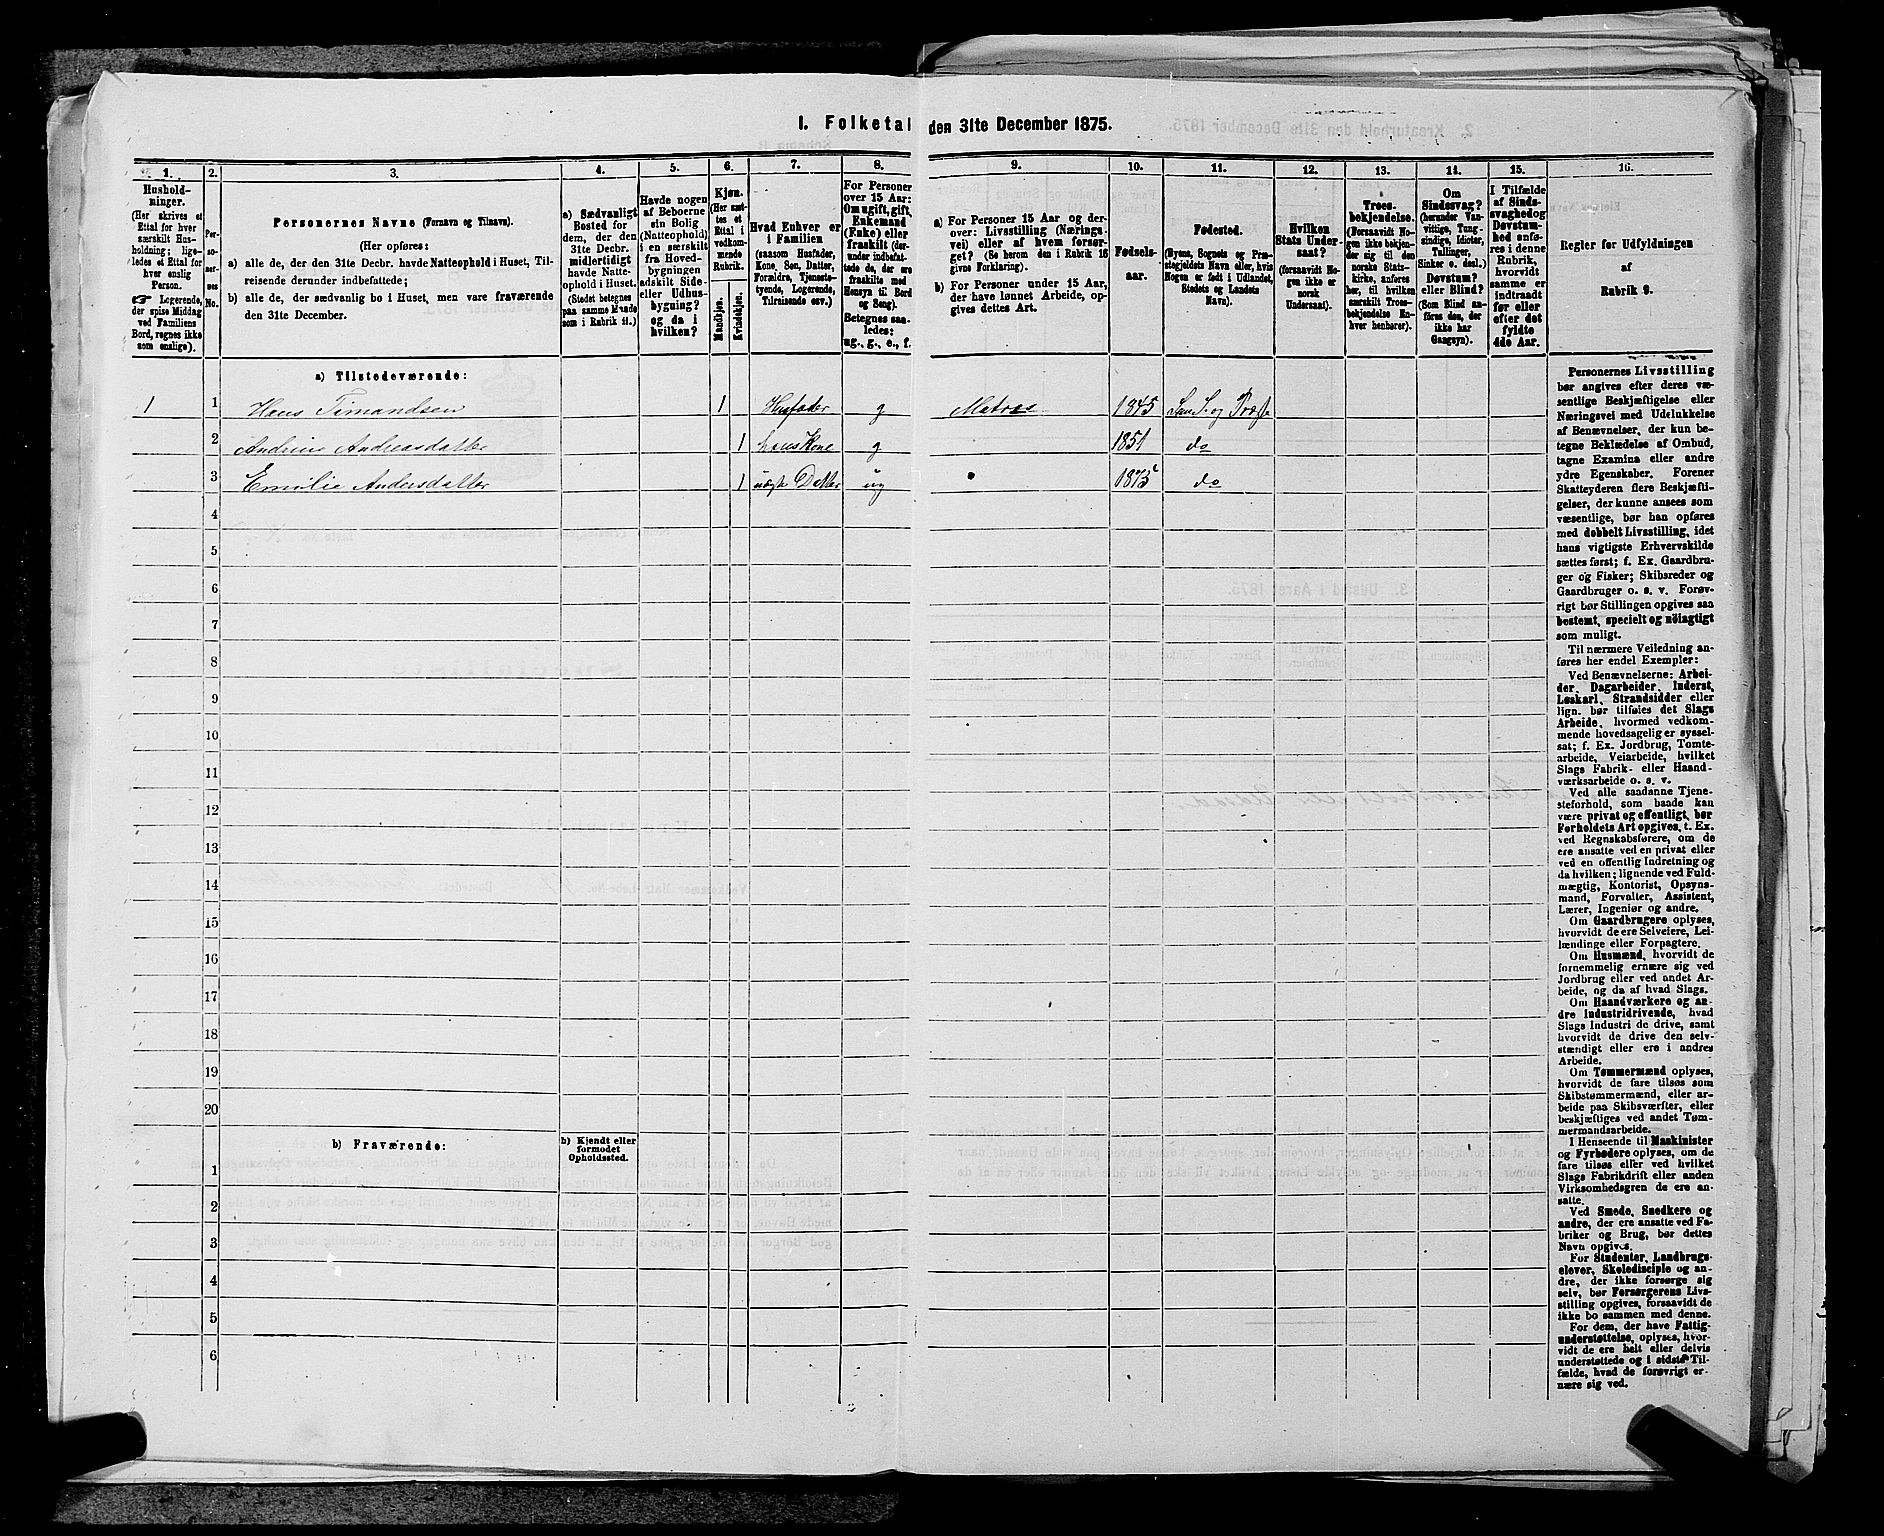 I. Folketal den 31te December 1875.
1.
Hushold-
ninger.
(Her skrives et
Ettal for hver
særskilt Hus-
holdning; lige-
ledes et Ettal for
hver enslig
Person.
Logerende,
der spise Middag
ved Familiens
Bord, regnes ikke
som enslige).
2.
Per-
so-
ner-
nes
No.
3.
Personernes Navne (Fornavn og Tilnavn).
(Her opføres:
a) alle de, der den 31te Decbr. havde Natteophold i Huset, Til-
reisende derunder indbefattede;
b) alle de, der sædvanlig bo i Huset, men vare fraværende
den 31te December.
4.
a) Sædvanligt
Bosted for
dem, der den
31te Decbr.
midlertidigt
havde Natte-
ophold i Huset.
(Stedet betegnes
paa samme Maade
som i Rubrik 11.)
5.
Havde nogen
af Beboerne
sin Bolig
(Natteophold)
i en særskilt
fra Hoved-
bygningen
adskilt Side-
eller Udhus-
bygning?
og da i
hvilken?
6.
Kjøn.
(Her sæt-
tes et
Ettal i
vedkom-
mende
Rubrik.
Mandkjøn.
Kvindekjøn.
7.
Hvad Enhver er
i Familien
(saasom Husfader,
Kone, Søn, Datter,
Forældre, Tjeneste-
tyende, Logerende,
Tilreisende osv.)
8.
For Personer
over 15 Aar:
Om ugift, gift,
Enkemand
(Enke) eller
fraskilt (der-
under indbefat-
tede de, der ere
fraskilte med
Hensyn til Bord
og Seng).
Betegnes saa-
ledes:
ug., g., e., f.
9.
a) For Personer 15 Aar og der-
over: Livsstilling (Nærings-
vei) eller af hvem forsør-
get? (Se herom den i Rubrik 16
givne Forklaring).
b) For Personer under 15 Aar,
der have lønnet Arbeide, op-
gives dettes Art.
10.
Fødsels-
aar.
11.
Fødested.
(Byens, Sognets og Præ-
stegjeldets Navn eller, hvis
Nogen er født i Udlandet,
Stedets og Landets
Navn).
12.
Hvilken
Stats Under-
saat?
(forsaavidt No-
gen ikke er
norsk
Undersaat).
13.
Troes-
bekjendelse.
(Forsaavidt No-
gen ikke bekjen-
der sig til den
norske Stats-
kirke, anføres
her, til hvilken
særskilt Troes-
bekjendelse En-
hver henhører).
14.
Om
Sindssvag?
(herunder Van-
vittige, Tung-
sindige, Idioter,
Tullinger,
Sinker o. desl.)
Døvstum?
eller Blind?
(Som Blind an-
føres den, der
ikke har
Gangsyn).
15.
I Tilfælde
af Sinds-
svaghed og
Døvstum-
hed anfø-
res i denne
Rubrik,
hvorvidt
samme er
indtraadt
før eller
efter det
fyldte
4de Aar.
16.
Regler for Udfyldningen
af
Rubrik 9.
a) Tilstedeværende:
1 1 Hans Timandsen 1 Husfader g Matros 1845 S. og Præst
2 Andrine Andreasdatter 1 hans Kone g 1851 do
3 Emilie Andersdatter 1 Datter ug 1875 do
4
5
6
7
8
9
10
11
12
13
14
15
16
17
18
19
20
b) Fraværende:
b) Kjendt eller
formodet
Opholdssted.
1
2
3
4
5
6
Personernes Livsstilling
bør angives efter deres væ-
sentlige Beskjæftigelse eller
Næringsvei med Udelukkelse
af Benævnelser, der kun be-
tegne Beklædelse af Ombud,
tagne Examina eller andre
ydre Egenskaber. Forener
Skatteyderen flere Beskjæfti-
gelser, der kunne ansees som
væsentlige, bør han opføres
med dobbelt Livsstilling, idet
hans vigtigste Erhvervskilde
sættes først; f. Ex. Gaardbru-
ger og Fisker; Skibsreder og
Gaardbruger o. s. v. Forøv-
rigt bør Stillingen opgives saa
bestemt, specielt og nöiagtigt
som muligt.
Til nærmere Veiledning an-
føres her endel Exempler:
Ved Benævnelserne: Arbei-
der, Dagarbeider, Inderst,
Løskarl, Strandsidder eller
lign. bør tilføies det Slags
Arbeide, hvormed vedkom-
mende hovedsagelig er syssel-
sat; f. Ex. Jordbrug, Tomte-
arbeide, Veiarbeide, hvilket
Slags Fabrik- eller Haand-
værksarbeide o. s. v.
Ved alle saadanne Tjene-
steforhold, som baade kan
være privat og offentligt, bør
Forholdets Art opgives, t. Ex.
ved Regnskabsførere, om de
ere ansatte ved en privat eller
ved en offentlig Indretning og
da hvilken; lignende ved Fuld-
mægtig, Kontorist, Opsyns-
mand, Forvalter, Assistent,
Lærer, Ingeniør og andre.
Om Gaardbrugere oplyses,
hvorvidt de ere Selveiere, Lei-
lændinge eller Forpagtere.
Om Husmænd, hvorvidt de
fornemmelig ernære sig ved
Jordbrug eller ved andet Ar-
beide, og da af hvad Slags.
Om Haandværkere og an-
dre Industridrivende, hvad
Slags Industri de drive, samt
hvorvidt de drive den selv-
stændigt eller ere i andres
Arbeide.
Om Tømmermænd oplyses,
hvorvidt de fare tilsøs som
Skibstømmermænd, eller ar-
beide paa Skibsværfter, eller
beskjæftiges ved andet Tøm-
mermandsarbeide.
I Henseende til Maskinister
og Fyrbødere oplyses, om de
fare tilsøs eller ved hvilket
Slags Fabrikdrift eller anden
Virksomhedsgren de ere an-
satte.
Ved Smede, Snedkere og
andre, der ere ansatte ved Fa-
briker og Brug, bør dettes
Navn opgives.
For Studenter, Landbrugs-
elever, Skoledisciple og an-
dre, der ikke forsørge sig
selv, bør Forsørgerens Livs-
stilling opgives, forsaavidt de
ikke bo sammen med denne.
For dem, der have Fattig-
understøttelse, oplyses, hvor-
vidt de ere helt eller delvis
understøttede og i sidste Til-
fælde, hvad de forøvrigt er-
nære sig ved.